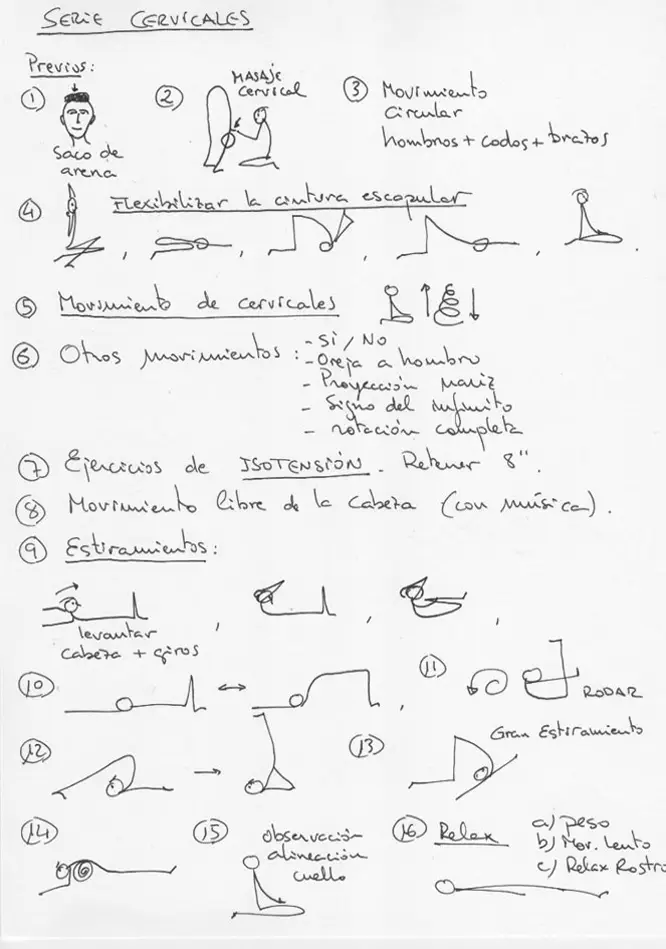 SERIE CERVICALES
Previos:
① saco de
arena
② MASAJE
cervical
③ Movimiento
circular
hombros + codos + brazos
④ Flexibilizar la cintura escapular
, , , , .
⑤ Movimiento de cervicales
⑥ Otros movimientos : - Sí / No
- Oreja a hombro
- Proyección nariz
- Signo del infinito
- rotación completa
⑦ Ejercicios de ISOTENSIÓN. Retener 8".
⑧ Movimiento libre de la cabeza (con música).
⑨ Estiramientos:
levantar
cabeza + giros
, ,
⑩ ,
⑪ RODAR
⑫
⑬ Gran Estiramiento
⑭
⑮ observación
alineación
cuello
⑯ Relax a) peso
b) Mov. lento
c) Relax Rostro